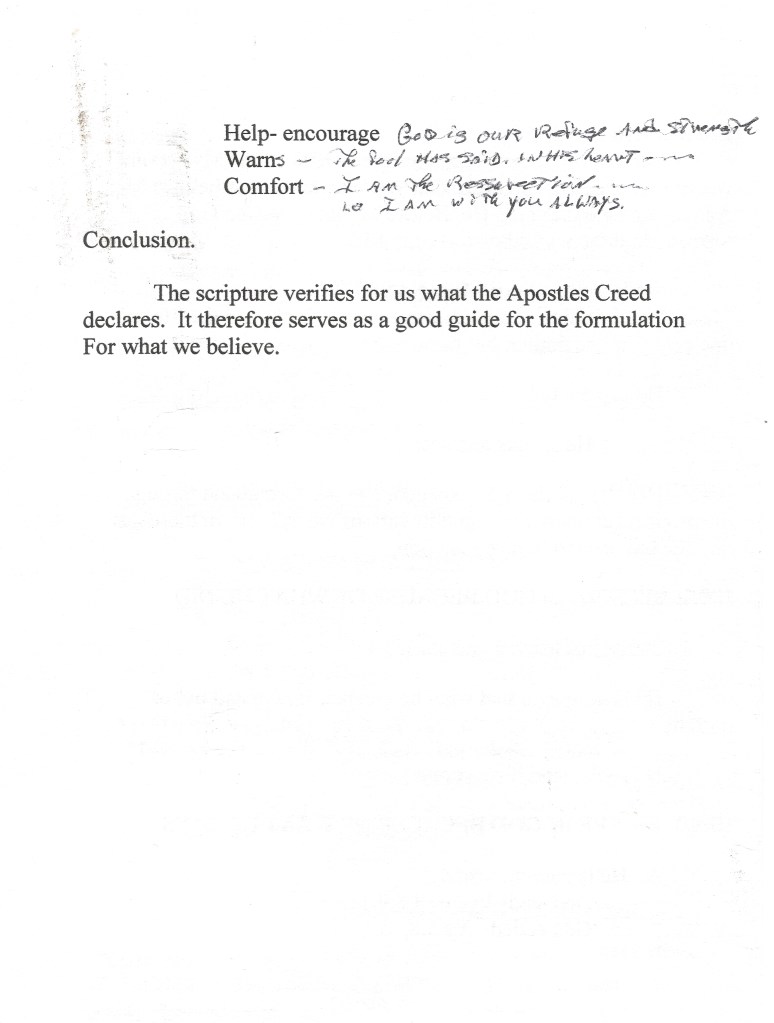 Help- encourage God is our Refuge And Strength
Warns – The fool HAS SAID. IN HIS heart - ---
Comfort – I AM The Ressurection. ---
Lo I AM with you ALWAYS.
Conclusion.
The scripture verifies for us what the Apostles Creed
declares. It therefore serves as a good guide for the formulation
For what we believe.